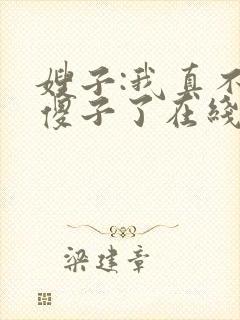 嫂子:我真不
傻子了在线
梁建章